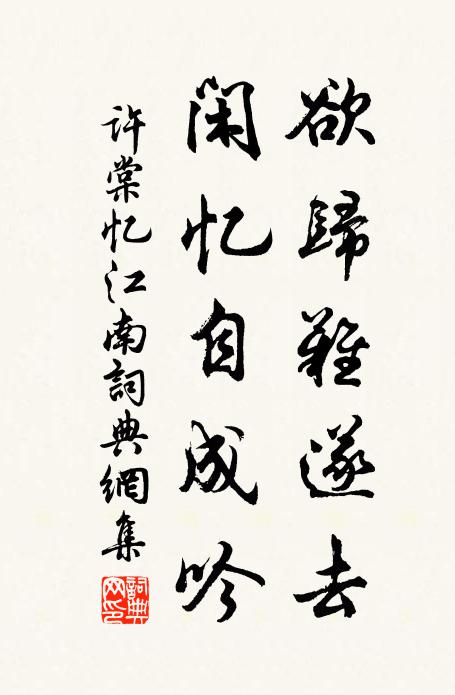 欲歸難遂去
闲忆自成吟
许棠忆江南詞典網集
詞典網印